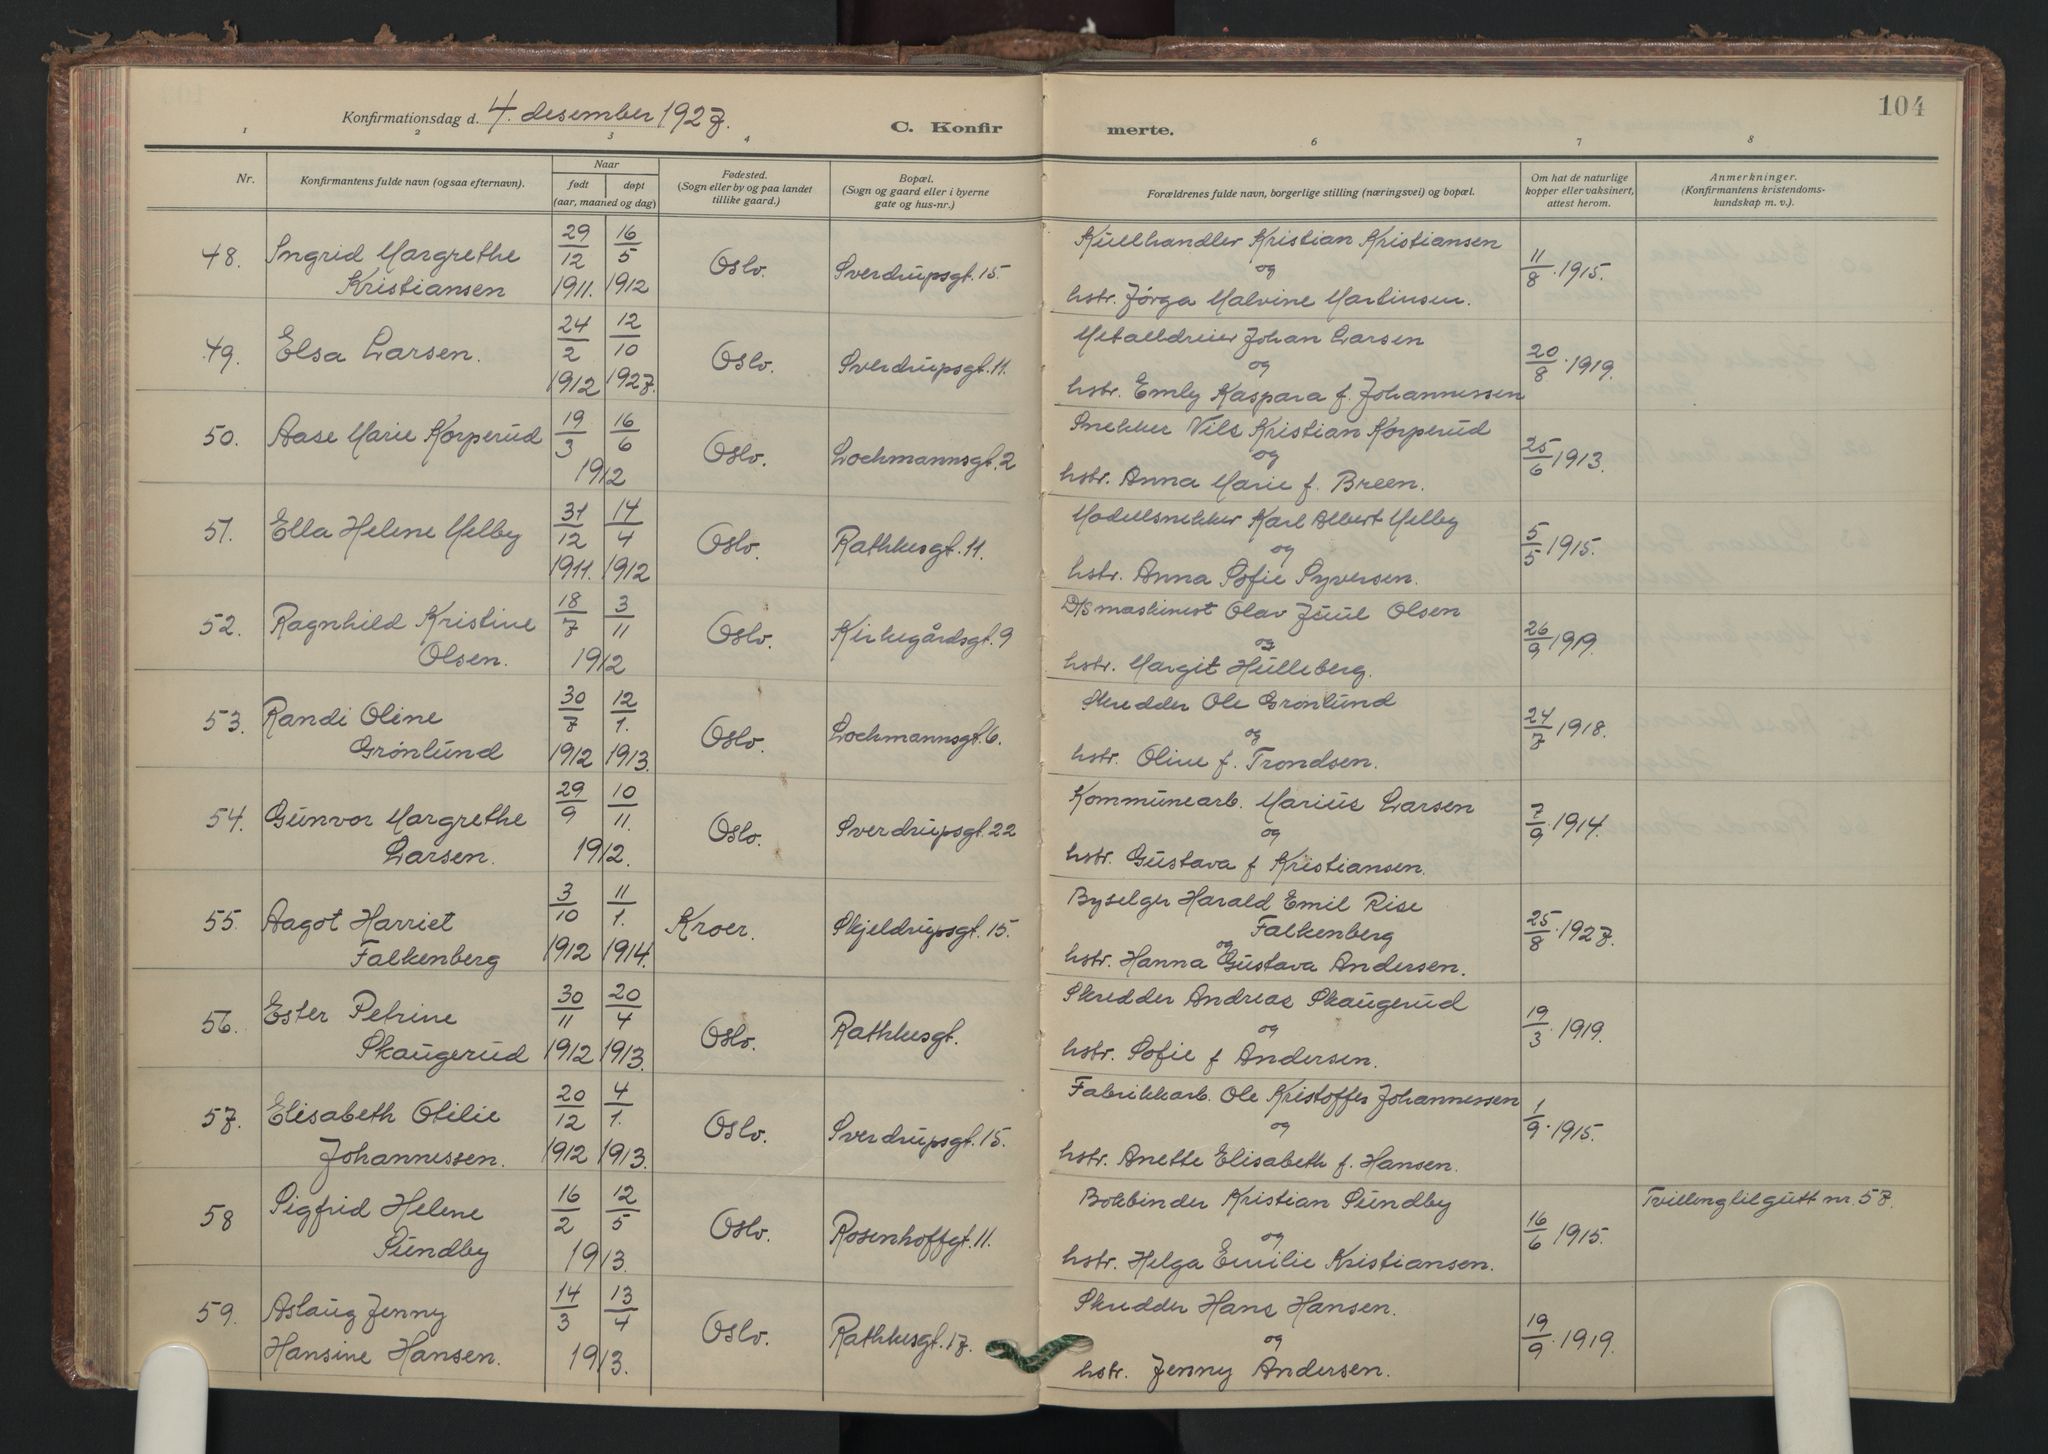 104
Konfirmationsdag d. 4. desember 1927. C. Konfir merte.
1 2 3 4 6 7 8
Nr.
Konfirmantens fulde navn (ogsaa efternavn).
Naar
født døpt
(aar, maaned og dag)
Fødested.
(Sogn eller by og paa landet
tillike gaard.)
Bopæl.
(Sogn og gaard eller i byerne
gate og hus-nr.)
Forældrenes fulde navn, borgerlige stilling (næringsvei) og bopæl.
Om hat de naturlige
kopper eller vaksinert,
attest herom.
Anmerkninger.
(Konfirmantens kristendoms-
kundskap m. v.).
48. Ingrid Margrethe
Kristiansen
29/12 1911. 16/5 1912
Oslo. Sverdrupsgt. 15.
Kullhandler Kristian Kristiansen
og
hstr. Jørga Malvine Martinsen.
11/8 1915.
49. Elsa Larsen.
24/2 1912 12/10 1927.
Oslo. Sverdrupsgt. 11.
Metalldreier Johan Larsen
og
hstr. Emly Kaspara f. Johannessen
20/8 1919.
50. Aase Marie Korperud
19/3 16/6
1912
Oslo. Lochmannsgt. 2
Snekker Nils Kristian Korperud
og
hstr. Anna Marie f. Breen.
25/6 1913.
51. Ella Helene Melby
31/12 1911. 14/4 1912
Oslo. Rathkesgt. 11.
Modellsnekker Karl Albert Melby
og
hstr. Anna Sofie Syversen.
5/5 1915.
52. Ragnhild Kristine
Olsen.
18/7 3/11
1912
Oslo. Kirkegårdsgt. 9
D/S maskinist Olav Juul Olsen
og
hstr. Margit Hulleberg.
26/9 1919.
53. Randi Oline
Grønlund
30/7 1912 12/1. 1913.
Oslo. Lochmannsgt. 6.
Skredder Ole Grønlund
og
hstr. Oline f. Trondsen.
24/7 1918.
54. Gunvor Margrethe
Larsen.
29/9 10/11.
1912.
Oslo. Sverdrupsgt. 22
Kommunearb. Marius Larsen
og
hstr. Gustava f Kristiansen.
7/9 1914.
55. Aagot Harriet
Falkenberg
3/10 1912 11/1. 1914.
Kroer. Skjeldrupsgt. 15.
Byselger Harald Emil Rise
Falkenberg
og
hstr. Hanna Gustava Andersen.
25/8 1927.
56. Ester Petrine
Skaugerud
30/11 1912 20/4 1913.
Oslo. Rathkesgt.
Skredder Andreas Skaugerud
og
hstr. Sofie f Andersen.
19/3 1919.
57. Elisabeth Otilie
Johannessen.
20/12 1912 4/1. 1913.
Oslo. Sverdrupsgt. 15.
Fabrikkarb. Ole Kristoffer Johannessen
og
hstr. Anette Elisabeth f. Hansen.
1/9 1915.
58 Sigfrid Helene
Sundby
16/2 12/5
1913.
Oslo. Rosenhoffgt. 11.
Bokbinder Kristian Sundby
og
hstr. Helga Emilie Kristiansen.
16/6 1915.
Tvilling til gutt nr. 57.
59. Aslaug Jenny
Hansine Hansen.
14/3 13/4
1913.
Oslo. Rathkesgt. 17.
Skredder Hans Hansen.
og
hstr. Jenny Andersen.
19/9 1919.